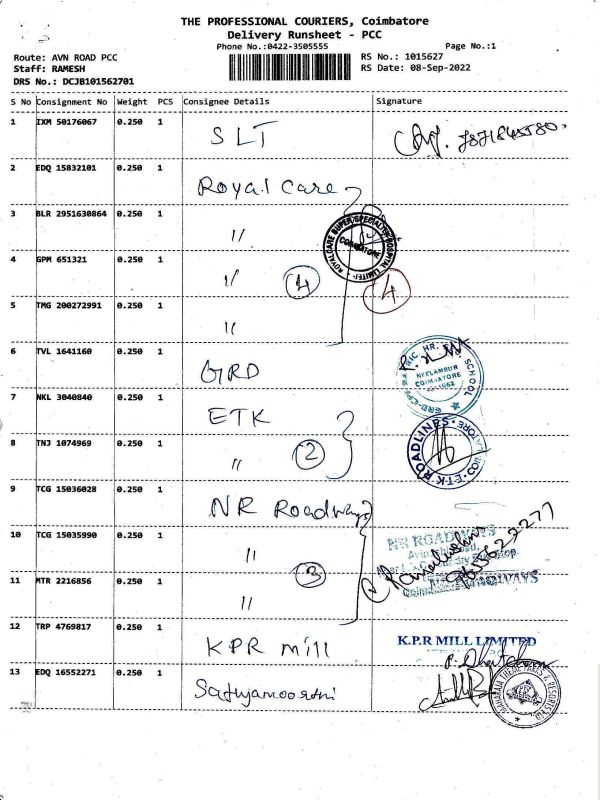 THE PROFESSIONAL COURIERS, Coimbatore
Delivery Runsheet - PCC
Phone No.:0422-3505555 Page No.:1
Route: AVN ROAD PCC RS No.: 1015627
Staff: RAMESH RS Date: 08-Sep-2022
DRS No.: DCJB101562701
S No Consignment No Weight PCS Consignee Details Signature
1 IXM 50176067 0.250 1 SLT
2 EDQ 15832101 0.250 1 Royal Care
3 BLR 2951630864 0.250 1 "
ROYALCARE SUPER SPECIALITY HOSPITAL LIMITED
COIMBATORE
4 GPM 651321 0.250 1 " 4 4
5 TMG 200272991 0.250 1 "
6 TVL 1641160 0.250 1 GRD
NEELAMBUR
COIMBATORE
SCHOOL
7 NKL 3040840 0.250 1 ETK
8 TNJ 1074969 0.250 1 " 2
ETK ROADLINES
9 TCG 15036028 0.250 1 NR Roadways
10 TCG 15035990 0.250 1 "
NR ROADWAYS
11 MTR 2216856 0.250 1 " 3
12 TRP 4769817 0.250 1 KPR mill K.P.R MILL LIMITED
13 EDQ 16552271 0.250 1 Sathyamoorthi